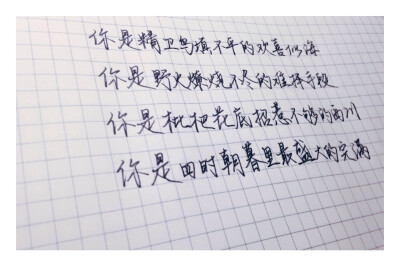 你是精卫鸟填不平的欢喜似海
你是野火燎烧不尽的难择手段
你是枇杷花底招惹不够的两川
你是四时朝暮里最盛大的完满